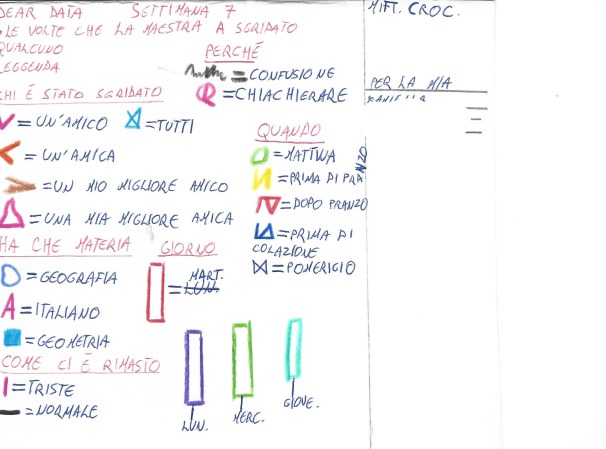 DEAR DATA SETTIMANA 7
LE VOLTE CHE LA MAESTRA A SGRIDATO
QUALCUNO
LEGGENDA
CHI É STATO SGRIDATO
= UN'AMICO
= TUTTI
= UN'AMICA
= UN MIO MIGLIORE AMICO
= UNA MIA MIGLIORE AMICA
HA CHE MATERIA
= GEOGRAFIA
= ITALIANO
= GEOMETRIA
COME CI É RIMASTO
= TRISTE
= NORMALE
PERCHÉ
= CONFUSIONE
= CHIACHIERARE
QUANDO
= MATTINA
= PRIMA DI PRANZO
= DOPO PRANZO
= PRIMA DI
COLAZIONE
= POMERIGIO
GIORNO
MART.
= LUN.
LUN.
MERC.
GIOVE.
MITT. CROC.
PER LA MIA